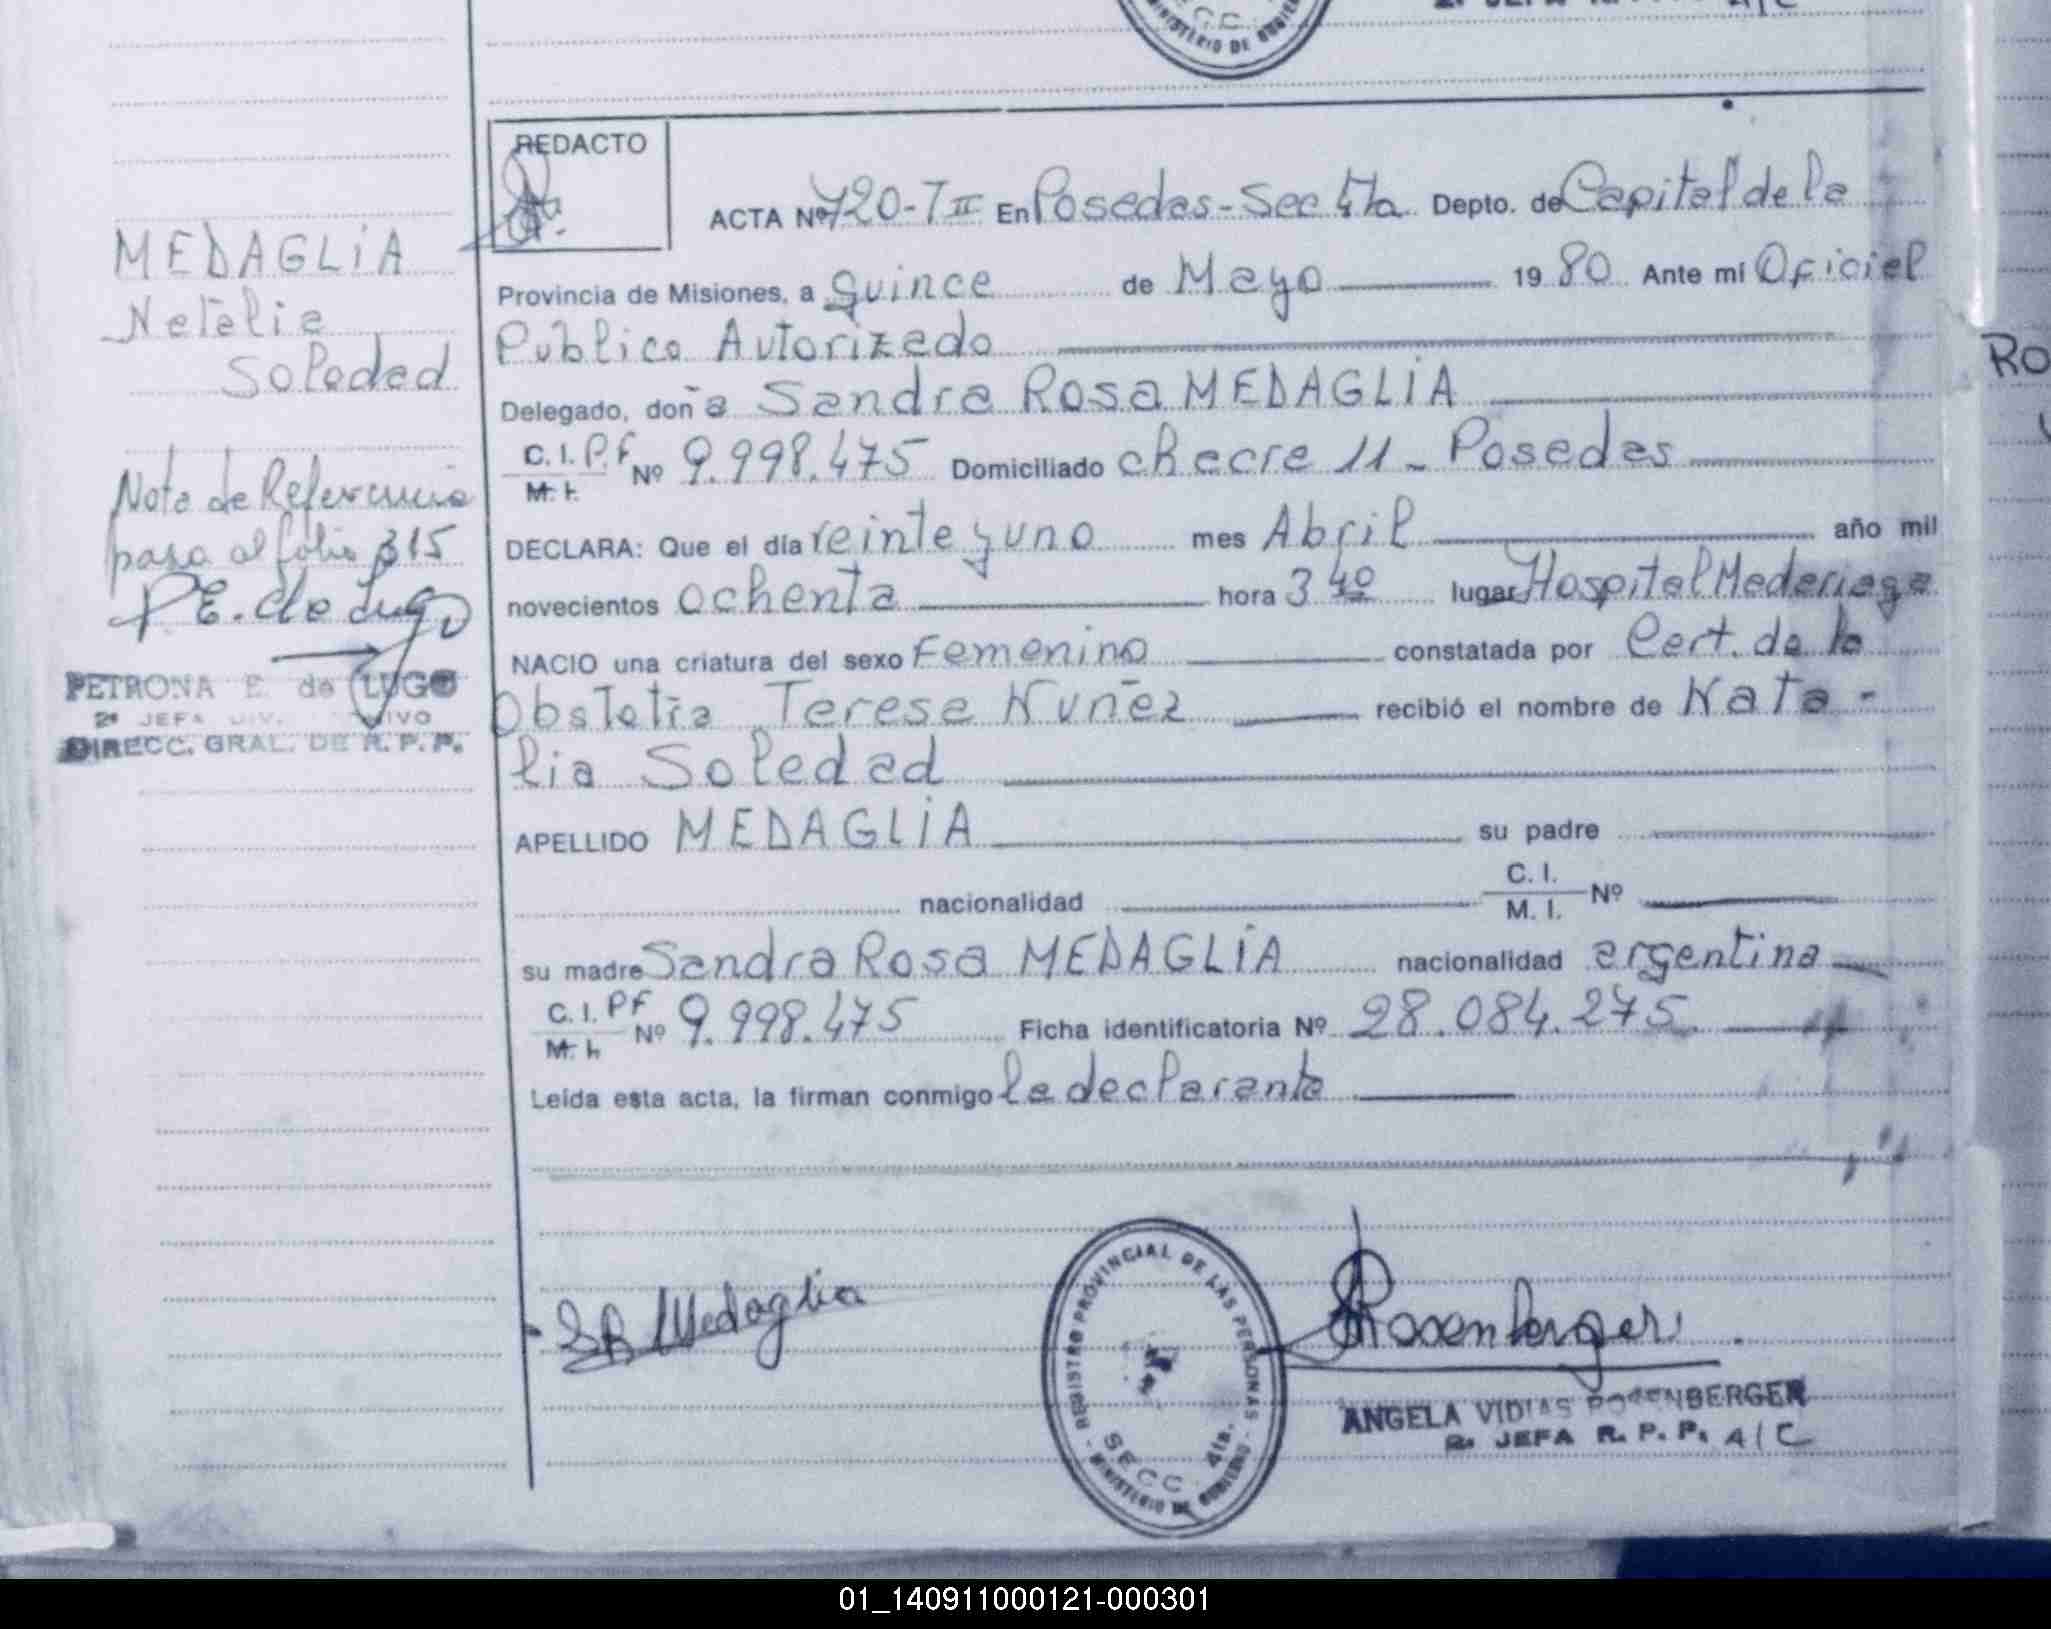 MINISTERIO DE
REDACTO
ACTA Nº 720-T II En Posadas-Sec 4ta Depto. de Capital de la
Provincia de Misiones, a quince de Mayo 1980 Ante mí Oficial
Publico Autorizado
Delegado, doña Sandra Rosa MEDAGLIA
C. I. P.F Nº 9.998.475 Domiciliado chacra 11 - Posadas
M. I.
DECLARA: Que el día veinte y uno mes Abril año mil
novecientos ochenta hora 3 40 lugar Hospital Madariaga
NACIO una criatura del sexo Femenino constatada por Cert. de la
Obstetra Teresa Nuñez recibió el nombre de Nata-
lia Soledad
APELLIDO MEDAGLIA su padre
nacionalidad C. I. Nº
M. I.
su madre Sandra Rosa MEDAGLIA nacionalidad argentina
C. I. PF Nº 9.998.475 Ficha identificatoria Nº 28.084.275
M. I.
Leída esta acta, la firman conmigo la declarante
MEDAGLIA
Natalia
Soledad
Nota de Referencia
pasa al folio 315
P E. de Lugo
PETRONA E. de LUGO
2ª JEFA DIV.
DIRECC. GRAL. DE R. P. P.
RO
SR Medaglia
REGISTRO PROVINCIAL DE LAS PERSONAS
SECC. 4ta.
MINISTERIO DE GOBIERNO
Rosenberger
ANGELA VIDIAS ROSENBERGER
2ª JEFA R. P. P. A/C
01_140911000121-000301